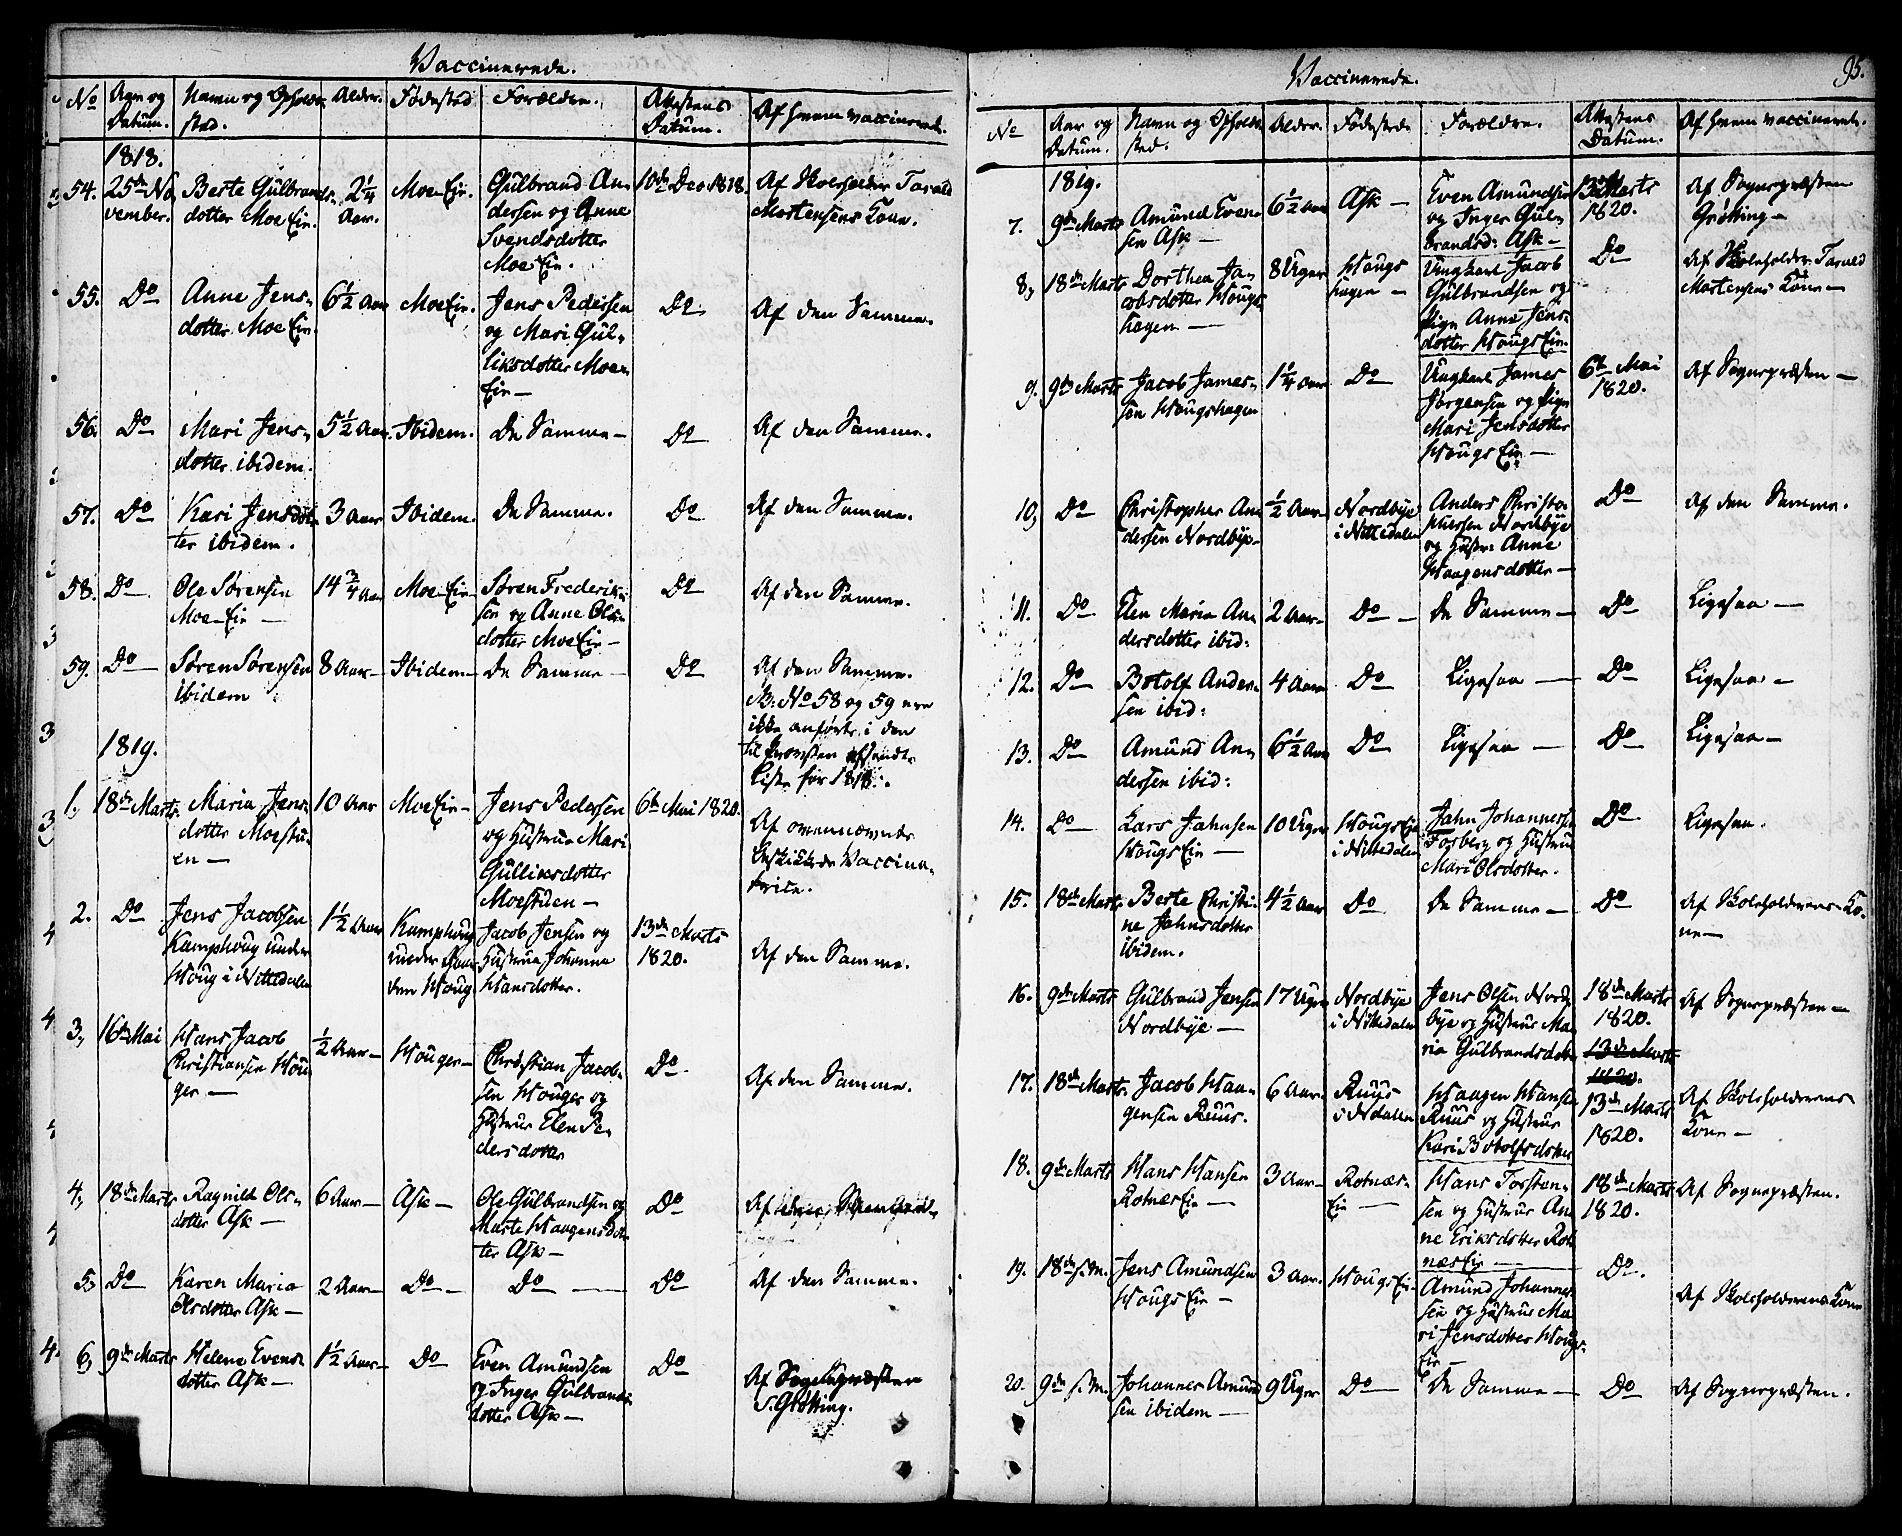 Vaccinerede.
No
Aar og Datum.
Navn og Opholds-
sted.
Alder.
Fødested
Forældre.
Attestens
Datum.
Af hvem vaccinerede.
1818.
54. 25de No-
vember.
Berte Gulbrands-
dotter Moe Eie.
2 1/4
Aar.
Moe Eie.
Gulbrand An-
dersen og Anne
Svendsdotter
Moe Eie.
10de Dec. 1818.
Af Skoleholder Tarald
Mortensens Kone.
55. Do
Anne Jens-
dotter Moe Eie.
6 1/2 Aar
Moe Eie.
Jens Pedersen
og Mari Gul-
liksdotter Moe-
Eie —
Do
Af den Samme.
56. Do
Mari Jens-
dotter ibidem.
5 1/2 Aar.
Ibidem.
De Samme —
Do
Af den Samme.
57. Do
Kari Jensdot-
ter ibidem.
3 Aar
Ibidem.
De Samme.
Do
Af den Samme.
58. Do
Ole Sørensen
Moe-Eie —
14 3/4 Aar
Moe-Eie
Søren Frederik-
sen og Anne Ols-
dotter Moe Eie —
Do
Af den Samme.
59. Do
Søren Sørensen
ibidem
8 Aar —
Ibidem —
De Samme —
Do
Af den Samme.
NB: No 58 og 59 ere
ikke anførte i den
til Provsten afsendte
Liste for 1818.
1819.
1, 18de Marts.
Maria Jens-
dotter Moestu-
en —
10 Aar
Moe Eie —
Jens Pedersen
og Hustrue Mari
Gulliksdotter
Moestuen —
6te Mai 1820.
Af ovennævnte
beskikkede Vaccina-
trice.
2. Do
Jens Jacobsen
Kamphoug under
Houg i Nittedalen
1 1/2 Aar
Kamphoug
under Gaar-
den Houg
Jacob Jensen og
Hustrue Johanne
Hansdotter.
13de Marts
1820.
Af den Samme.
3, 16de Mai
Hans Jacob
Christiansen Hou-
ger —
1/2 Aar —
Houger —
Christian Jacob-
sen Houger og
Hustrue Elen Pe-
dersdotter
Do
Af den Samme.
4, 18de Marts
Ragnild Ols-
dotter Ask —
6 Aar —
Ask —
Ole Gulbrandsen og
Marte Haagensdot-
ter Ask —
Do
Af
5, Do
Karen Maria
Olsdotter Ask —
2 Aar —
Do —
Do —
Do
Af den Samme.
6, 9de Marts
Helene Evens-
dotter Ask —
1 1/2 Aar —
Do
Even Amundsen
og Inger Gulbrands-
dotter Ask —
Do
Af Sognepræsten
S. Grøtting.
Vaccinerede.
95.
No
Aar og
Datum.
Navn og Opholds-
sted.
Alder.
Fødested
Forældre.
Attestens
Datum.
Af hvem vaccinerede.
1819.
7. 9de Marts
Amund Even-
sen Ask —
6 1/2 Aar
Ask —
Even Amundsen
og Inger Gul-
brandsd: Ask —
13de Marts
1820.
Af Sognepræsten
Grøtting —
8, 18de Marts
Dorthea Ja-
cobsdotter Hougs-
hagen —
8 Uger
Hougs
hagen —
Ungkarl Jacob
Gulbrandsen og
Pige Anne Jens-
dotter Hougs Eie.
Do
Af Skoleholder Tarald
Mortensens Kone —
9. 9de Marts
Jacob James-
sen Hougshagen
1 1/4 Aar
Do
Ungkarl James
Jørgensen og Pige
Mari Jensdotter
Hougs Eie —
6te Mai
1820.
Af Sognepræsten —
10, Do
Christopher An-
dersen Nordbye
1/2 Aar
Nordbye
i Nittedalen
Anders Christo-
phersen Nordbye
og Hustr: Anne
Haagensdotter —
Do
Af den Samme.
11. Do
Elen Maria An-
dersdotter ibid:
2 Aar —
Do —
De Samme —
Do
Ligesaa —
12. Do
Botolf Ander-
sen ibid:
4 Aar
Do
Ligesaa —
Do
Ligesaa —
13. Do
Amund An-
dersen ibid:
6 1/2 Aar
Do
Ligesaa —
Do
Ligesaa —
14. Do —
Lars Jahnsen
Hougs Eie —
10 Uger
Hougs Eie
i Nittedalen
Jahn Johannesen
Forberg og Hustrue
Mari Olsdotter.
Do
Ligesaa.
15. 18de Marts.
Berte Christi-
ne Jahnsdotter
ibidem.
4 1/2 Aar
Do
De Samme —
Do
Af Skoleholderens Ko-
ne —
16. 9de Marts
Gulbrand Jensen
Nordbye —
17 Uger
Nordbye
i Nittedalen
Jens Olsen Nord-
bye og Hustrue Ma-
ria Gulbrandsdotter
18de Marts
1820.
Af Sognepræsten —
13de Marts
1820.
17. 18de Marts.
Jacob Haa-
gensen Ruus.
6 Aar
Ruus
i Ndalen
Haagen Hansen
Ruus og Hustrue
Kari Botolfsdotter
13de Marts
1820.
Af Skoleholderens
Kone —
18. 9de Marts
Hans Hansen
Rotnæs Eie —
3 Aar —
Rotnæs-
Eie —
Hans Torsten-
sen og Hustrue An-
ne Eriksdotter Rot-
næs Eie —
18de Marts
1820.
Af Sognepræsten.
19. 18de s. M.
Jens Amundsen
Hougs Eie —
3 Aar.
Hougs Eie
Amund Johannes-
sen og Hustrue Ma-
ri Jensdotter Hougs-
Eie —
Do.
Af Skoleholderens Kone
20. 9de s. M.
Johannes Amund-
sen ibidem —
9 Uger
Do —
De Samme —
Do
Af Sognepræsten.